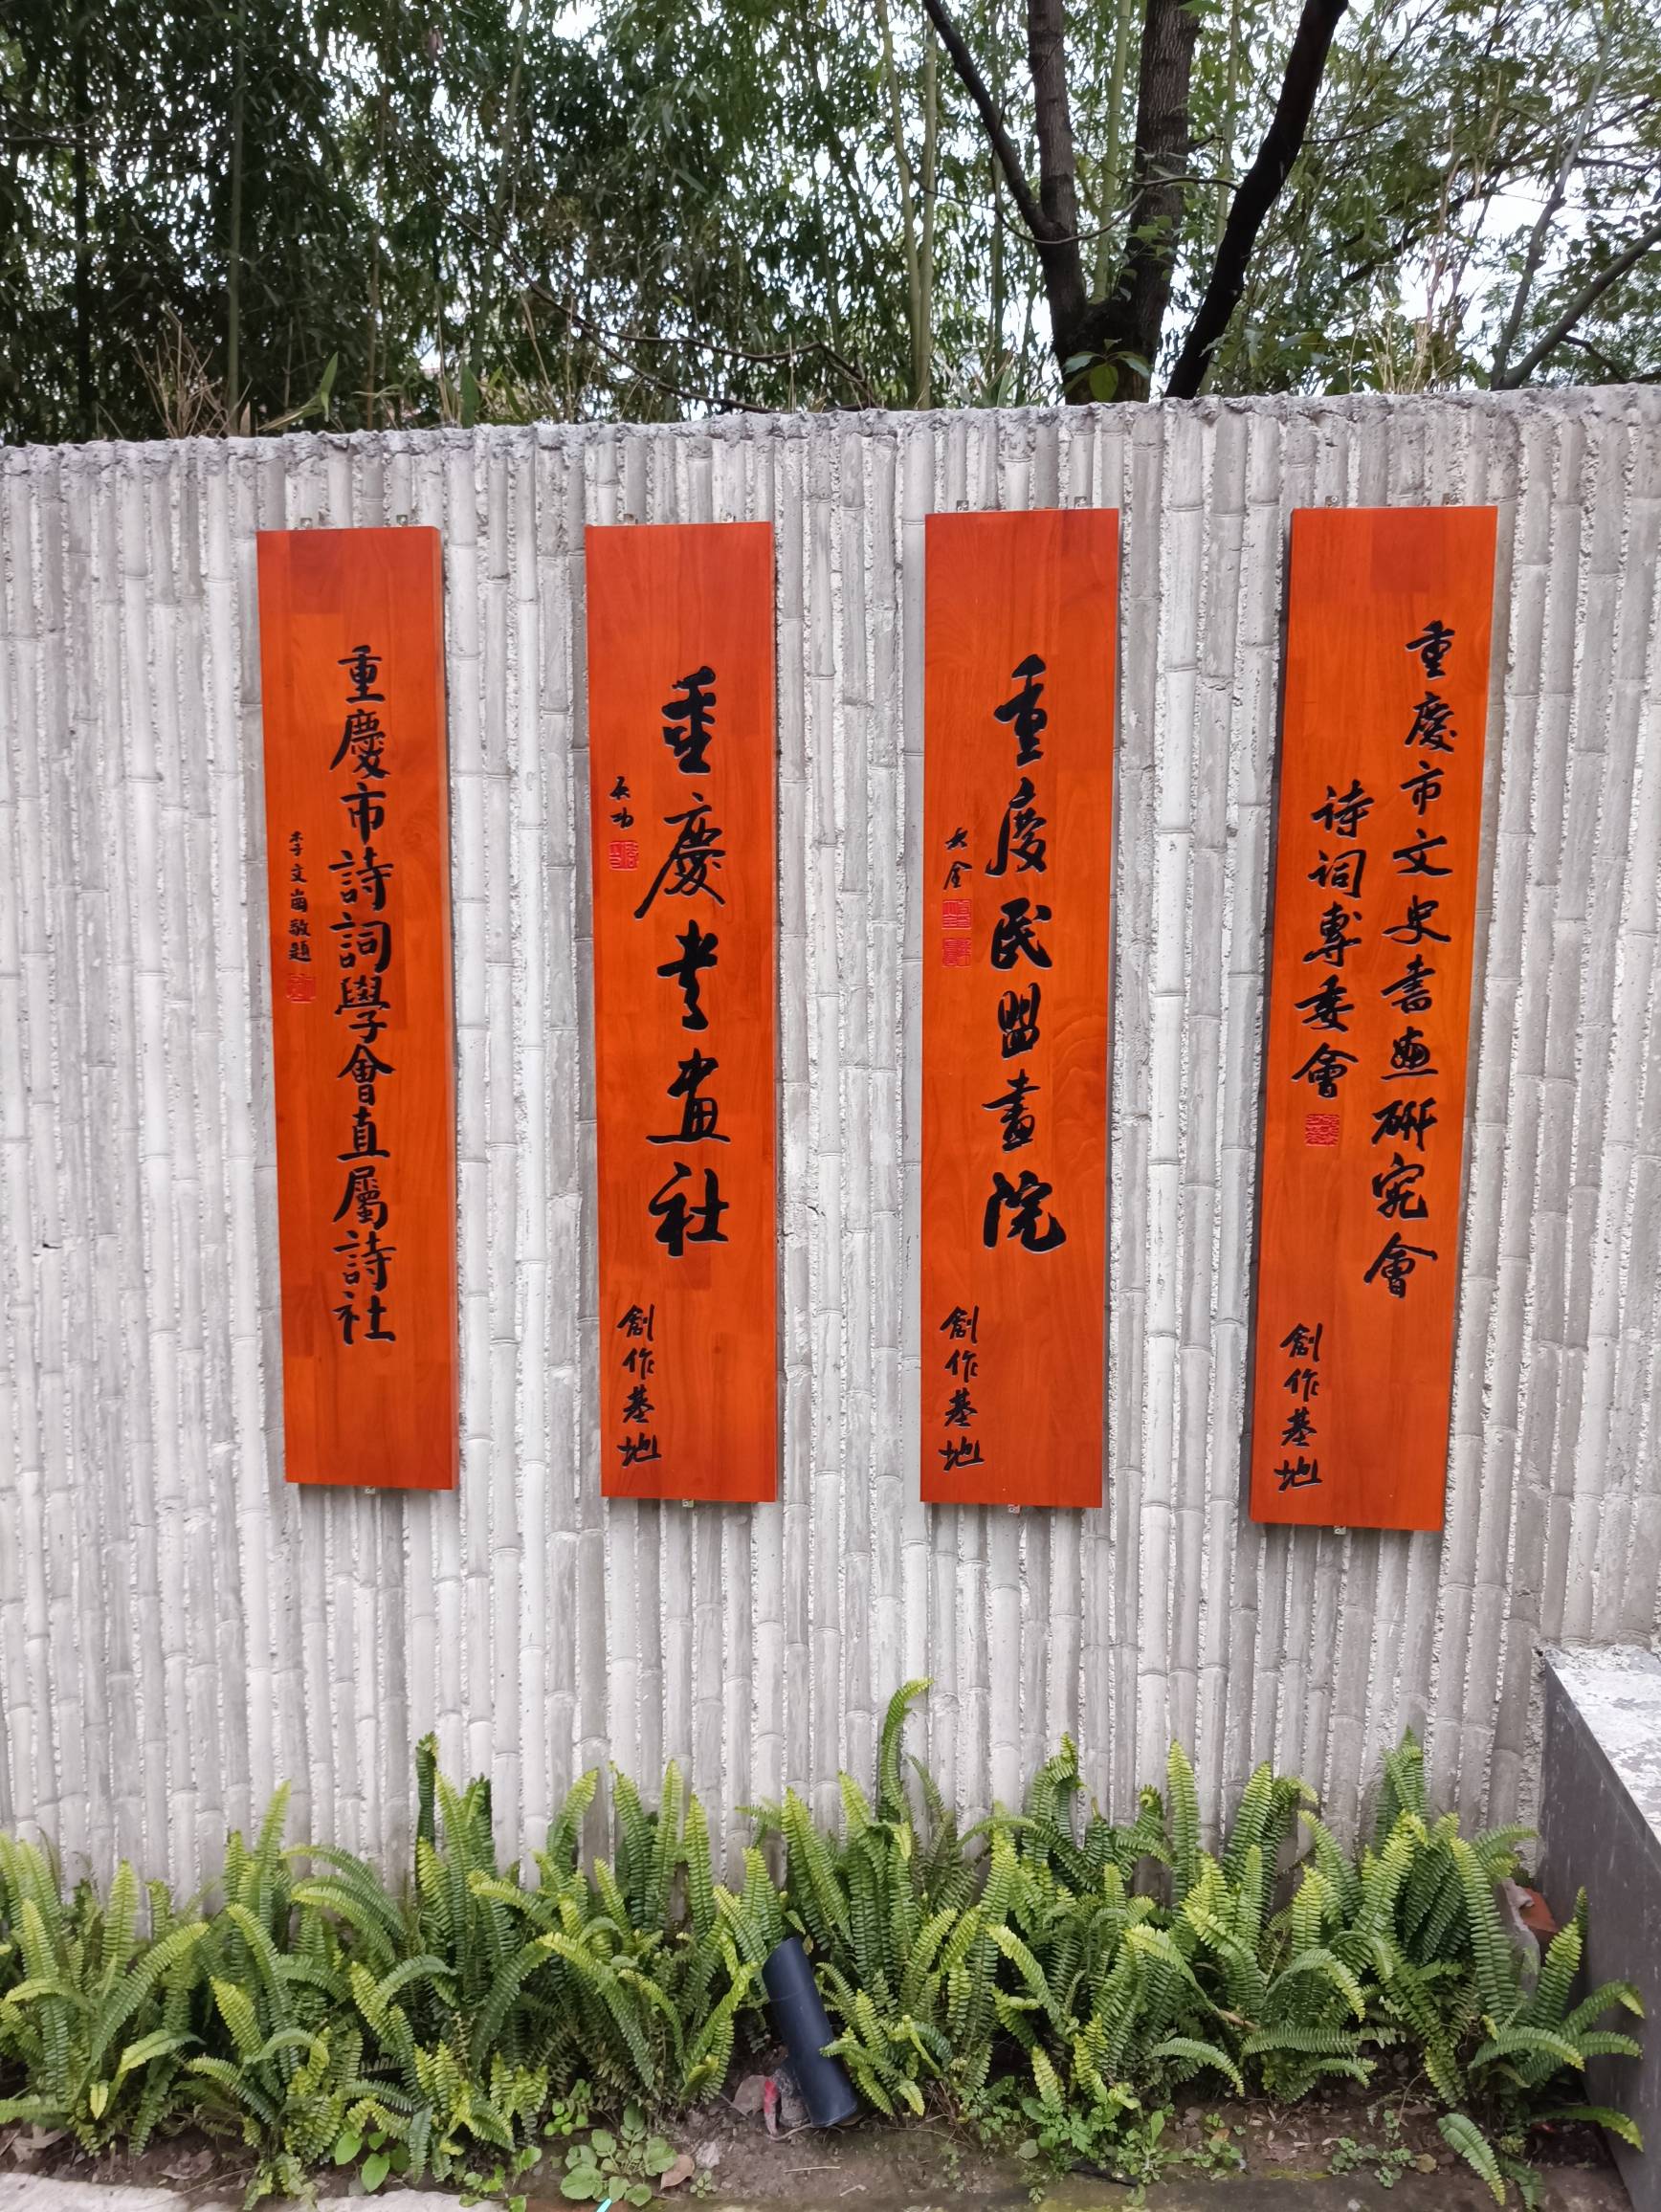 重慶市文史書畫研究會
诗词專委會
創作基地
重慶民盟畫院
創作基地
重慶书画社
启功
創作基地
重慶市詩詞學會直屬詩社
李文崗敬題